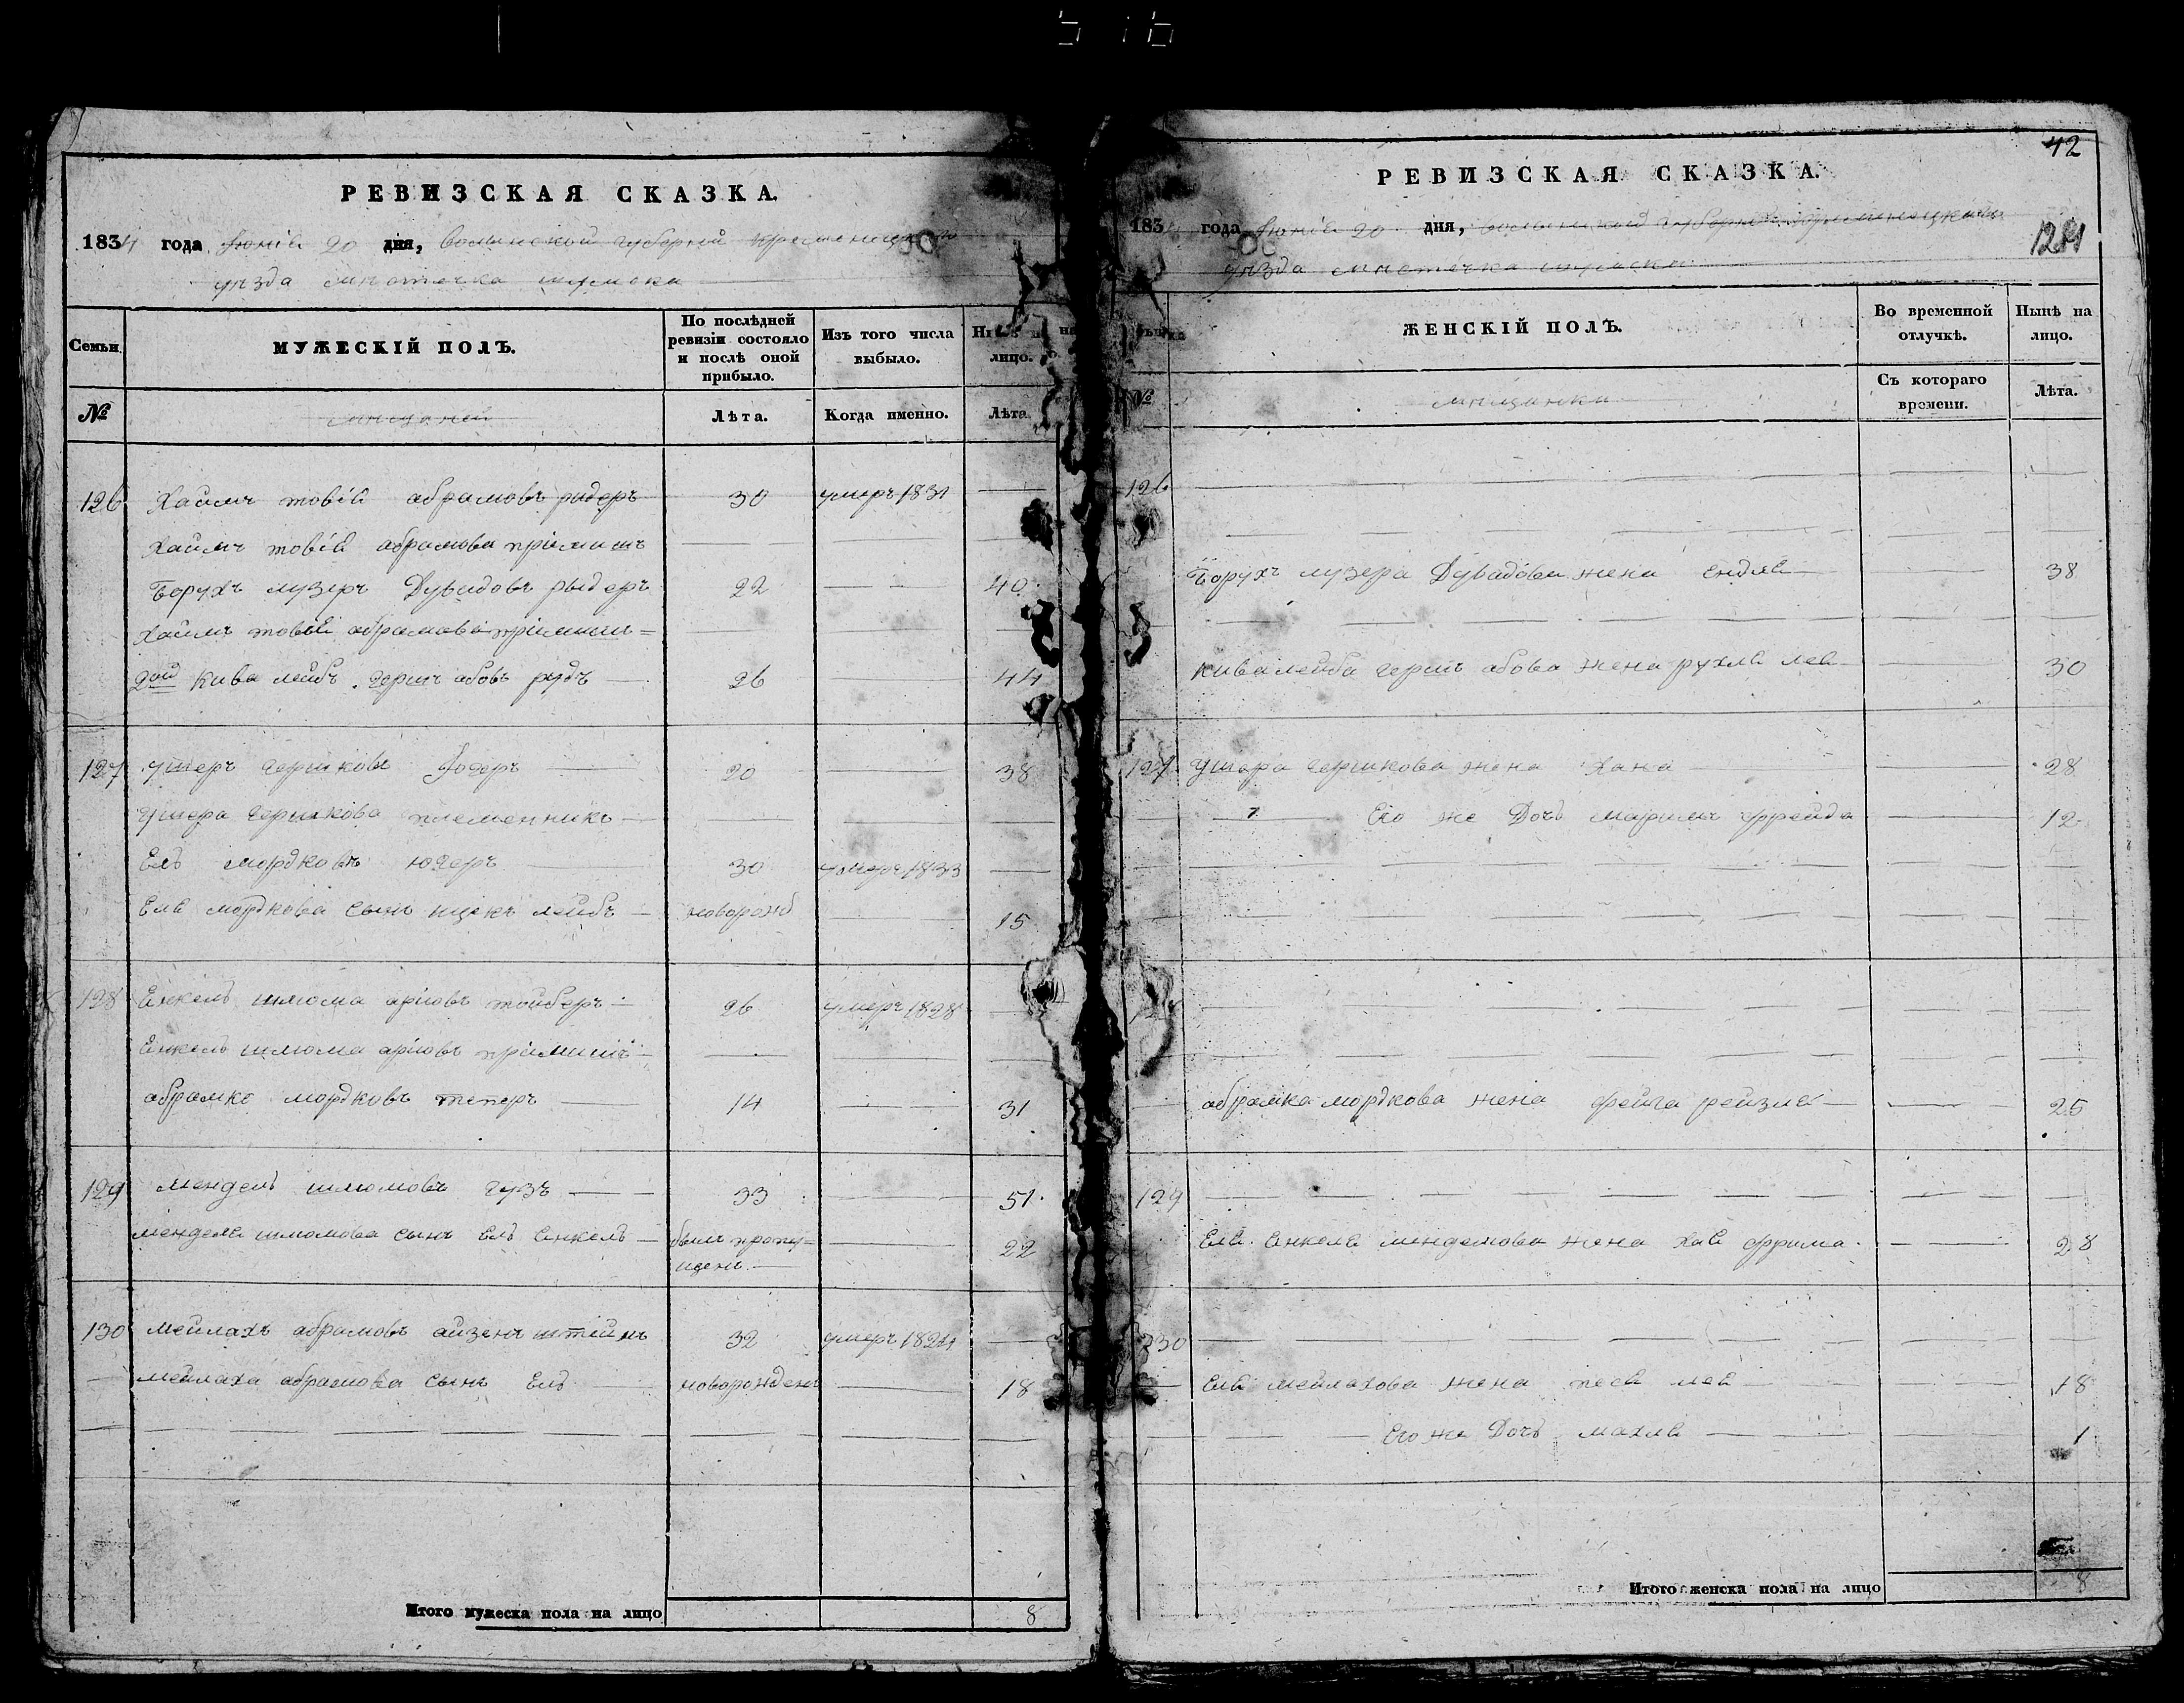 42
РЕВИЗСКАЯ СКАЗКА.
1834 года Іюнія 20 дня, волынской губерніи кременецкаго
уезда мистечка шумска
Семьи
МУЖЕСКІЙ ПОЛЪ.
По послѣдней ревизіи состояло и послѣ оной прибыло.
Изъ того числа выбыло.
Нынѣ на лицо.
№
мищаней
Лѣта.
Когда именно.
Лѣта.
126 Хаимъ товій абрамовъ ридеръ 30 умеръ 1831
Хаимъ товій абрамова пріимишъ
Борухъ лузеръ Дувидовъ рыдеръ 22 40
Хаимъ товій абрамова пріимишъ
2ой Кива лейбъ гершъ абовъ 26 44
127 Ушеръ гершковъ 20 38
Ушера гершкова племенникъ
Ель мордковъ югеръ 30 умеръ 1833
Еля мордкова сынъ ицекъ лейбъ новорожд 15
128 Енкель шлюма аріовъ тойберъ 26 умеръ 1828
Енкель шлюма аріовъ пріимишъ
абрамко мордковъ теперъ 14 31
129 Мендель шлюмовъ гузъ 33 51
менделя шлюмова сынъ Ель Енкель былъ пропущенъ 22
130 Мейлахъ абрамовъ айзенъ штейнъ 32 умеръ 1824
мейлаха абрамова сынъ Ель новорожденъ 18
Итого мужеска пола на лицо 8
РЕВИЗСКАЯ СКАЗКА.
183 года Іюнія 20 дня, волынской губерніи кременецкаго
уезда мистечка шумска
ЖЕНСКІЙ ПОЛЪ.
Во временной отлучкѣ.
Нынѣ на лицо.
№
мищанки
Съ котораго времени.
Лѣта.
126
Борухъ лузера Дувидова жена ендля 38
Кива лейба гершъ абова жена рухля лея 30
127 Ушера гершкова жена Хана 28
Его же Дочь маримъ фрейда 12
абрамка мордкова жена фейга рейзля 25
129
Еля Енкеля менделова жена Хая фрима 28
130
Еля мейлахова жена песя лея 18
Его же Дочь махля 1
Итого женска пола на лицо 8